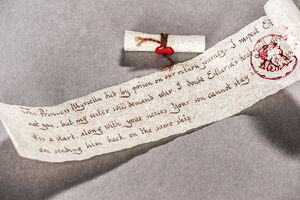 The Princess Myrcella died by poison on our return journey. I suspect Ell
not you, but my sister will demand war. I doubt Ellaria's
It is a start, along with your nieces. Your son cannot stay
am sending him back on the same ship.